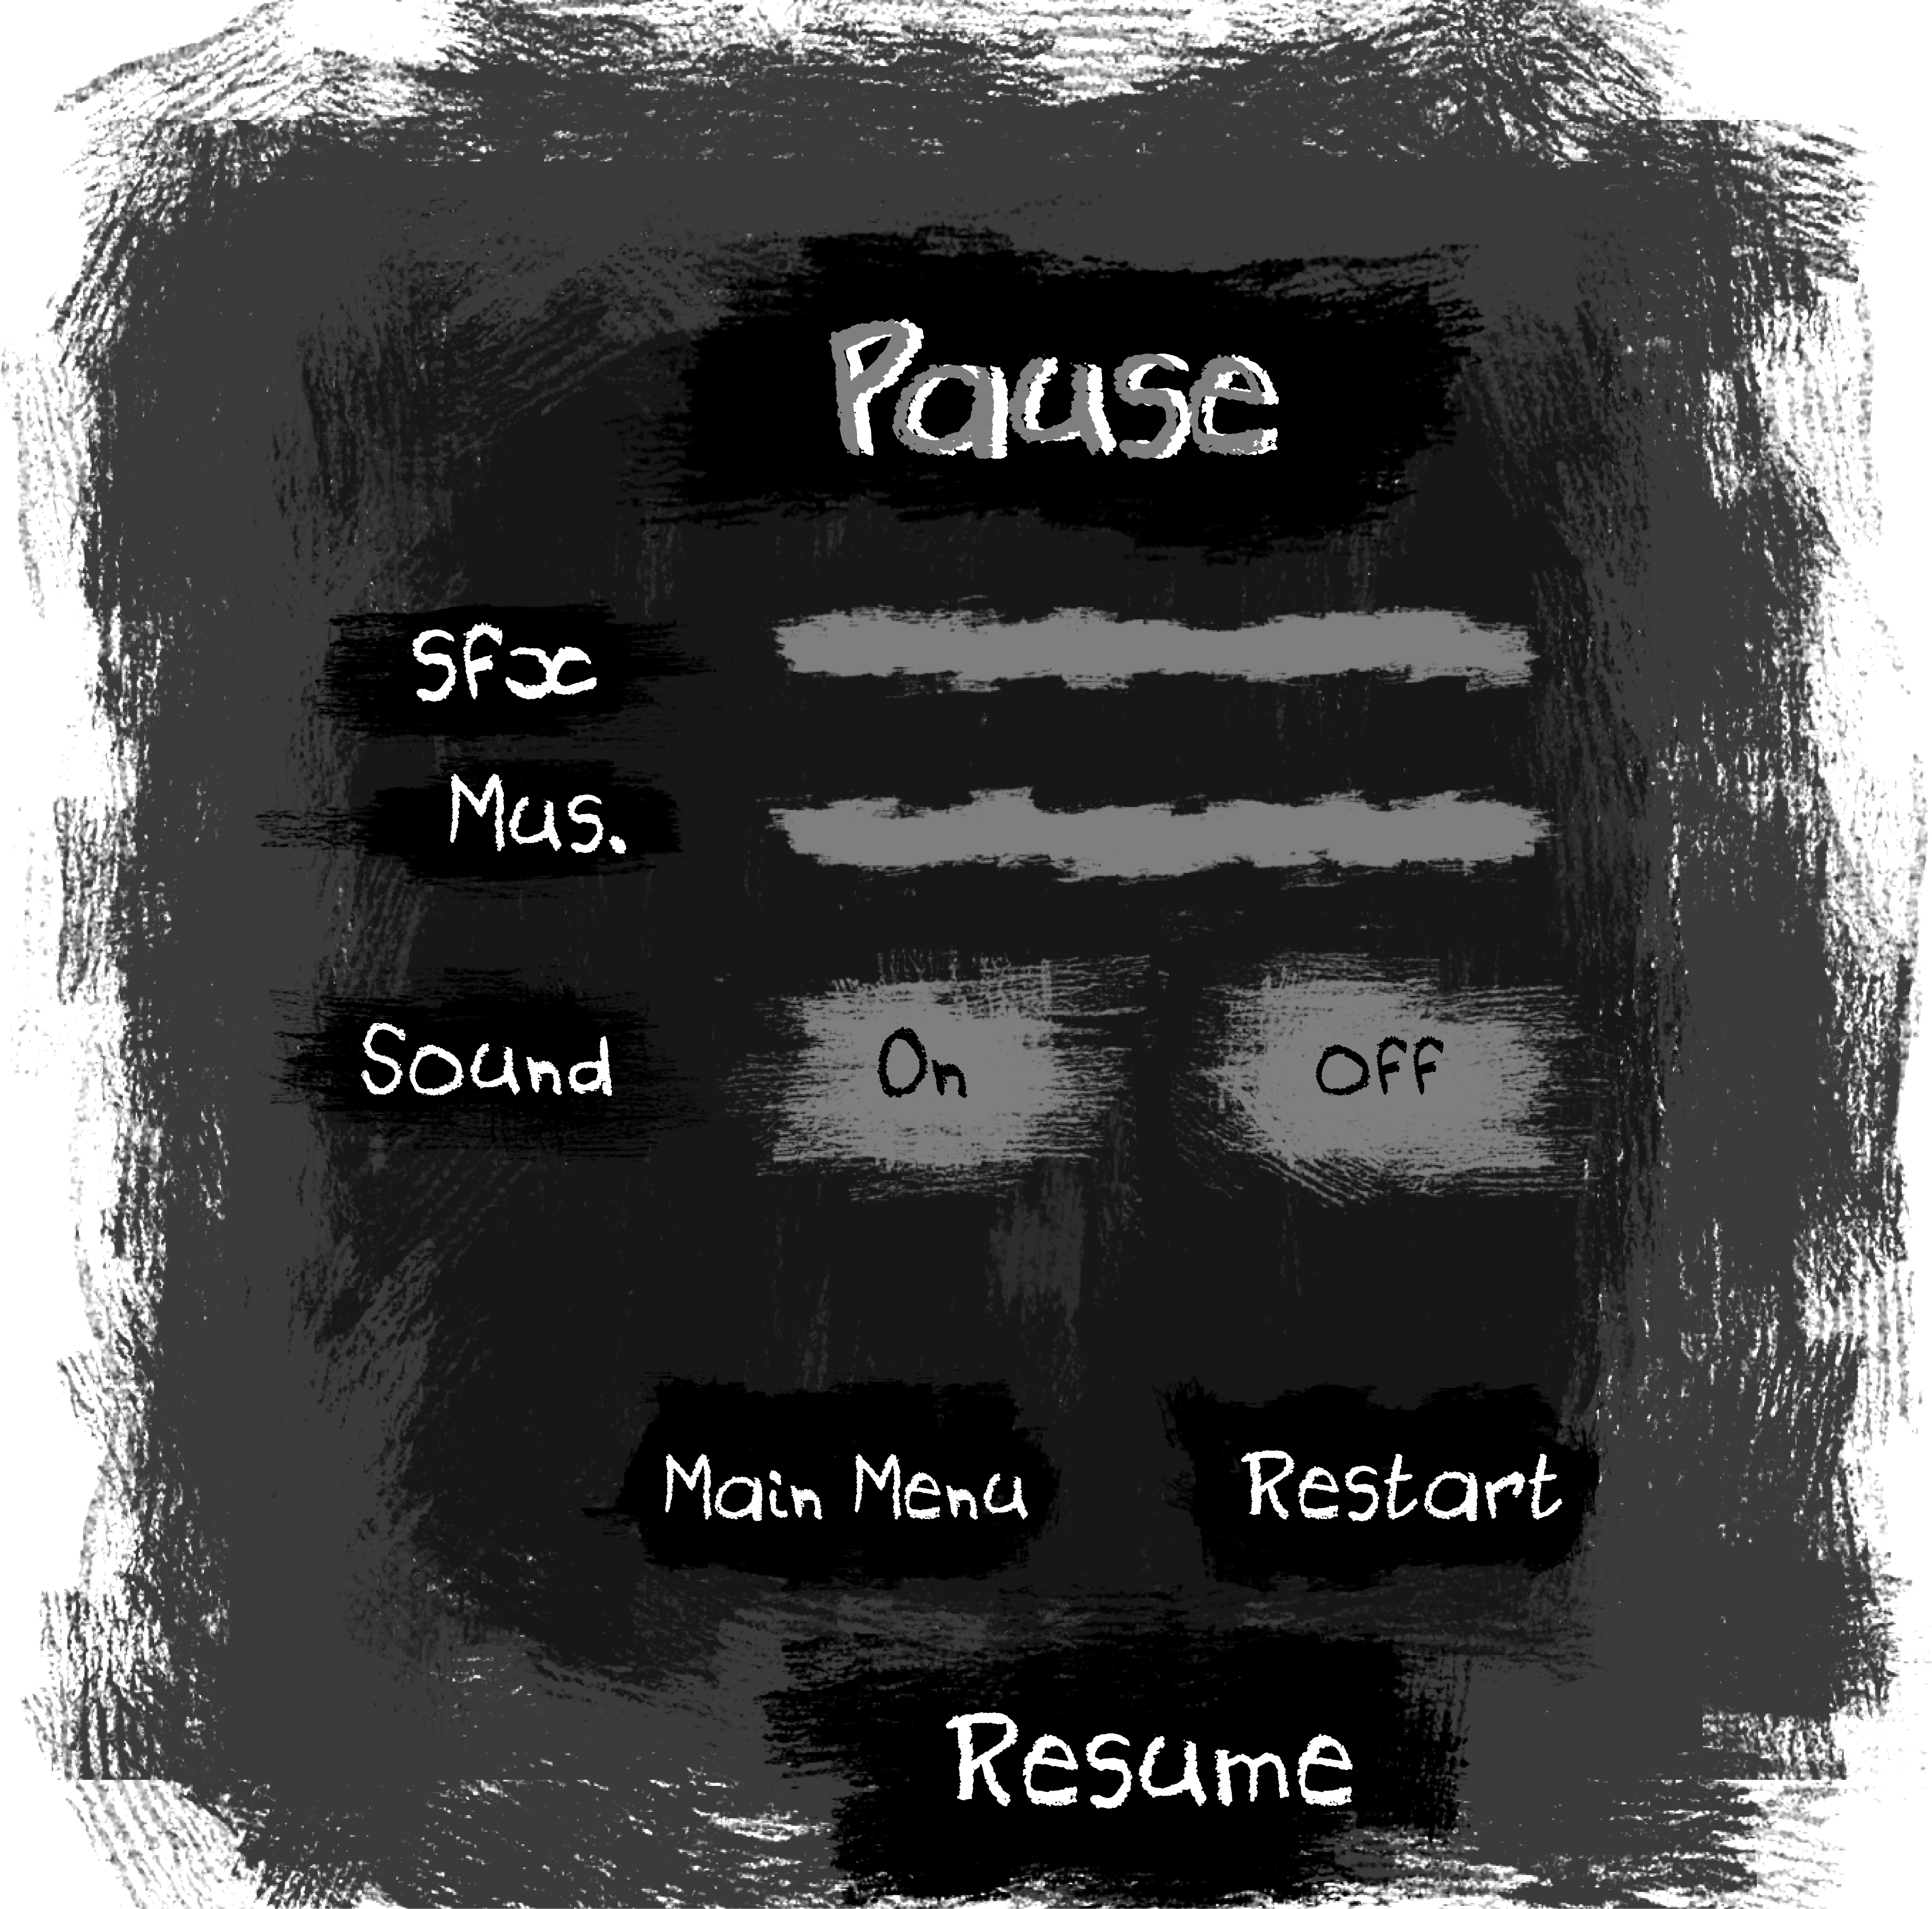 Pause
Sfx
Mus.
Sound On Off
Main Menu Restart
Resume